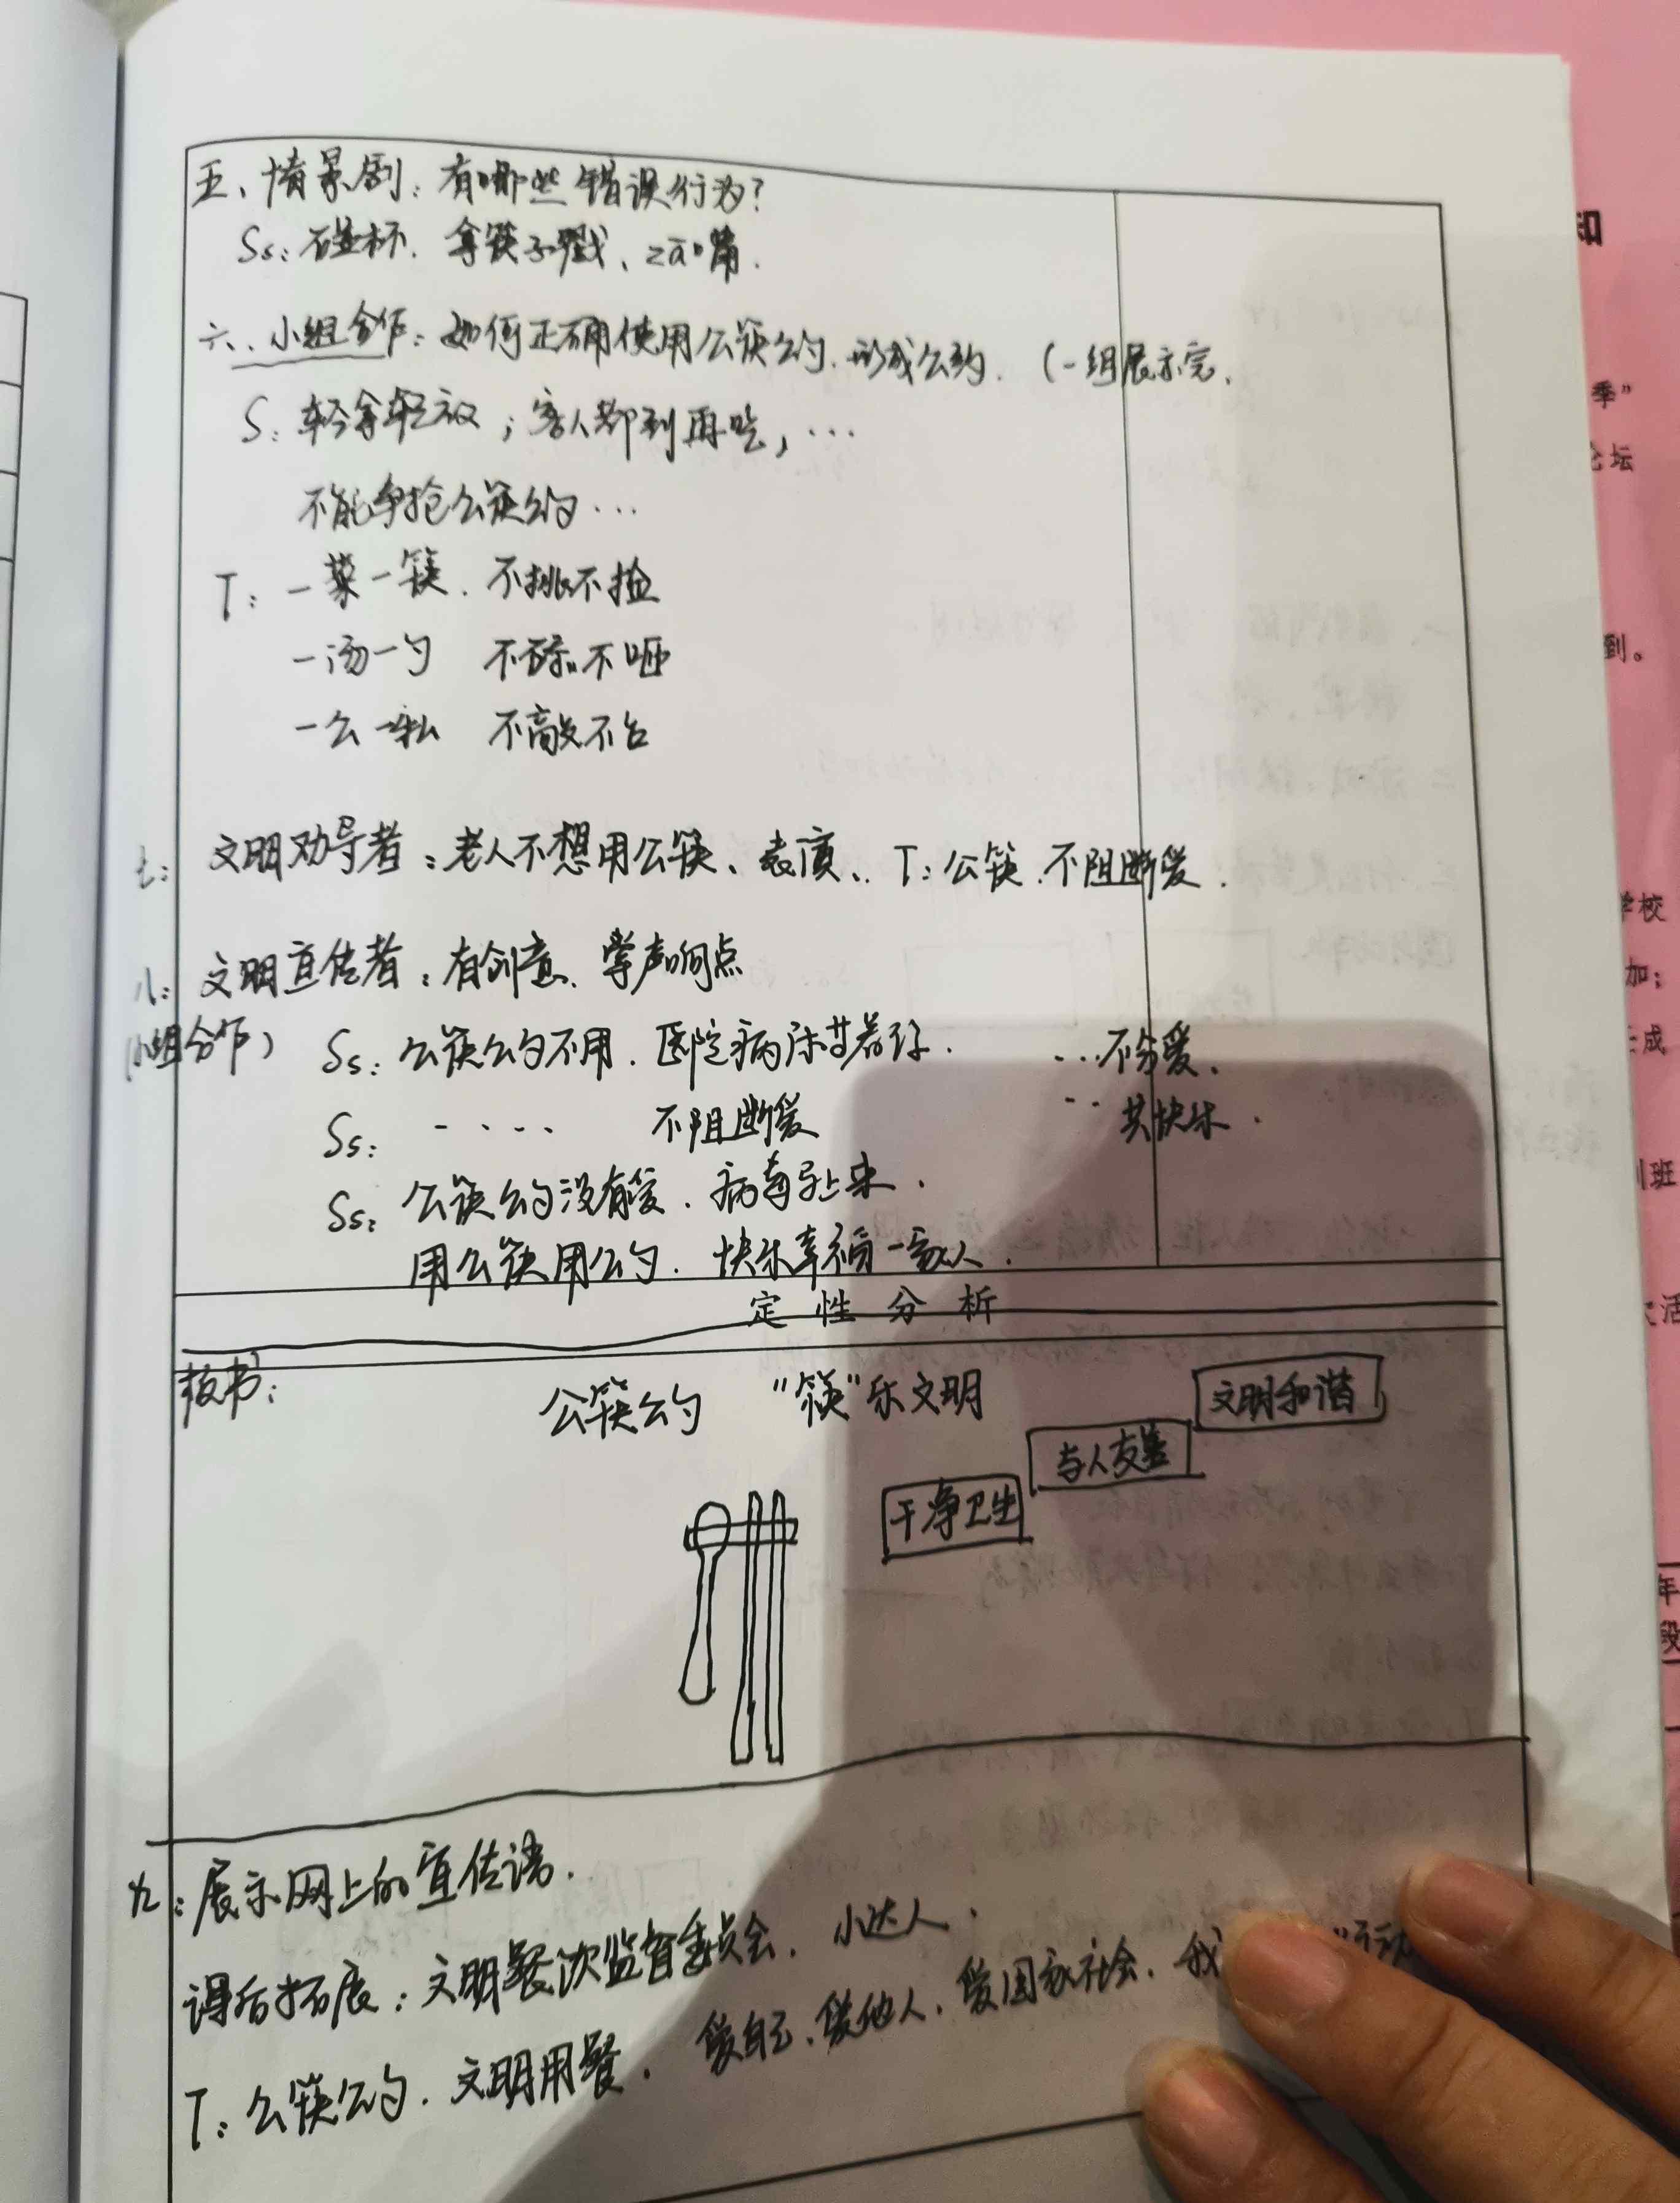 五、情景剧：有哪些错误行为？
Ss：碰杯．拿筷子戳、zā嘴．
六、小组合作：如何正确使用公筷公勺．形成公约．（一组展示完．
S：轻拿轻放；客人都到再吃，…
不能争抢公筷公勺…
T：一菜一筷．不挑不捡
一汤一勺 不舔不咂
一公一私 不敲不
七：文明劝导者：老人不想用公筷、表演、．T：公筷．不阻断爱．
八：文明宣传者：有创意、掌声响点
（小组合作） Ss：公筷公勺不用．医院病床 ． …不分爱．
Ss：---- 不阻断爱 -- 共快乐．
Ss：公筷公勺没有爱．病毒 上来．
用公筷用公勺．快乐幸福一家人．
定性分析
板书：
公筷公勺 “筷”乐文明
文明和谐
与人友善
干净卫生
九：展示网上的宣传语．
课后拓展：文明餐饮监督委员会．小达人．
T：公筷公勺．文明用餐．爱自己、爱他人．爱国家社会．我
知
季”
论坛
到。
学校
加；
成
训班
活
年
段